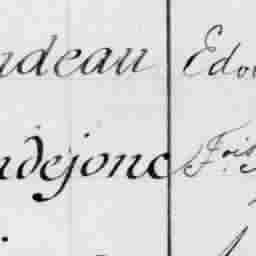 ndeau Edou
ndejonc Fois